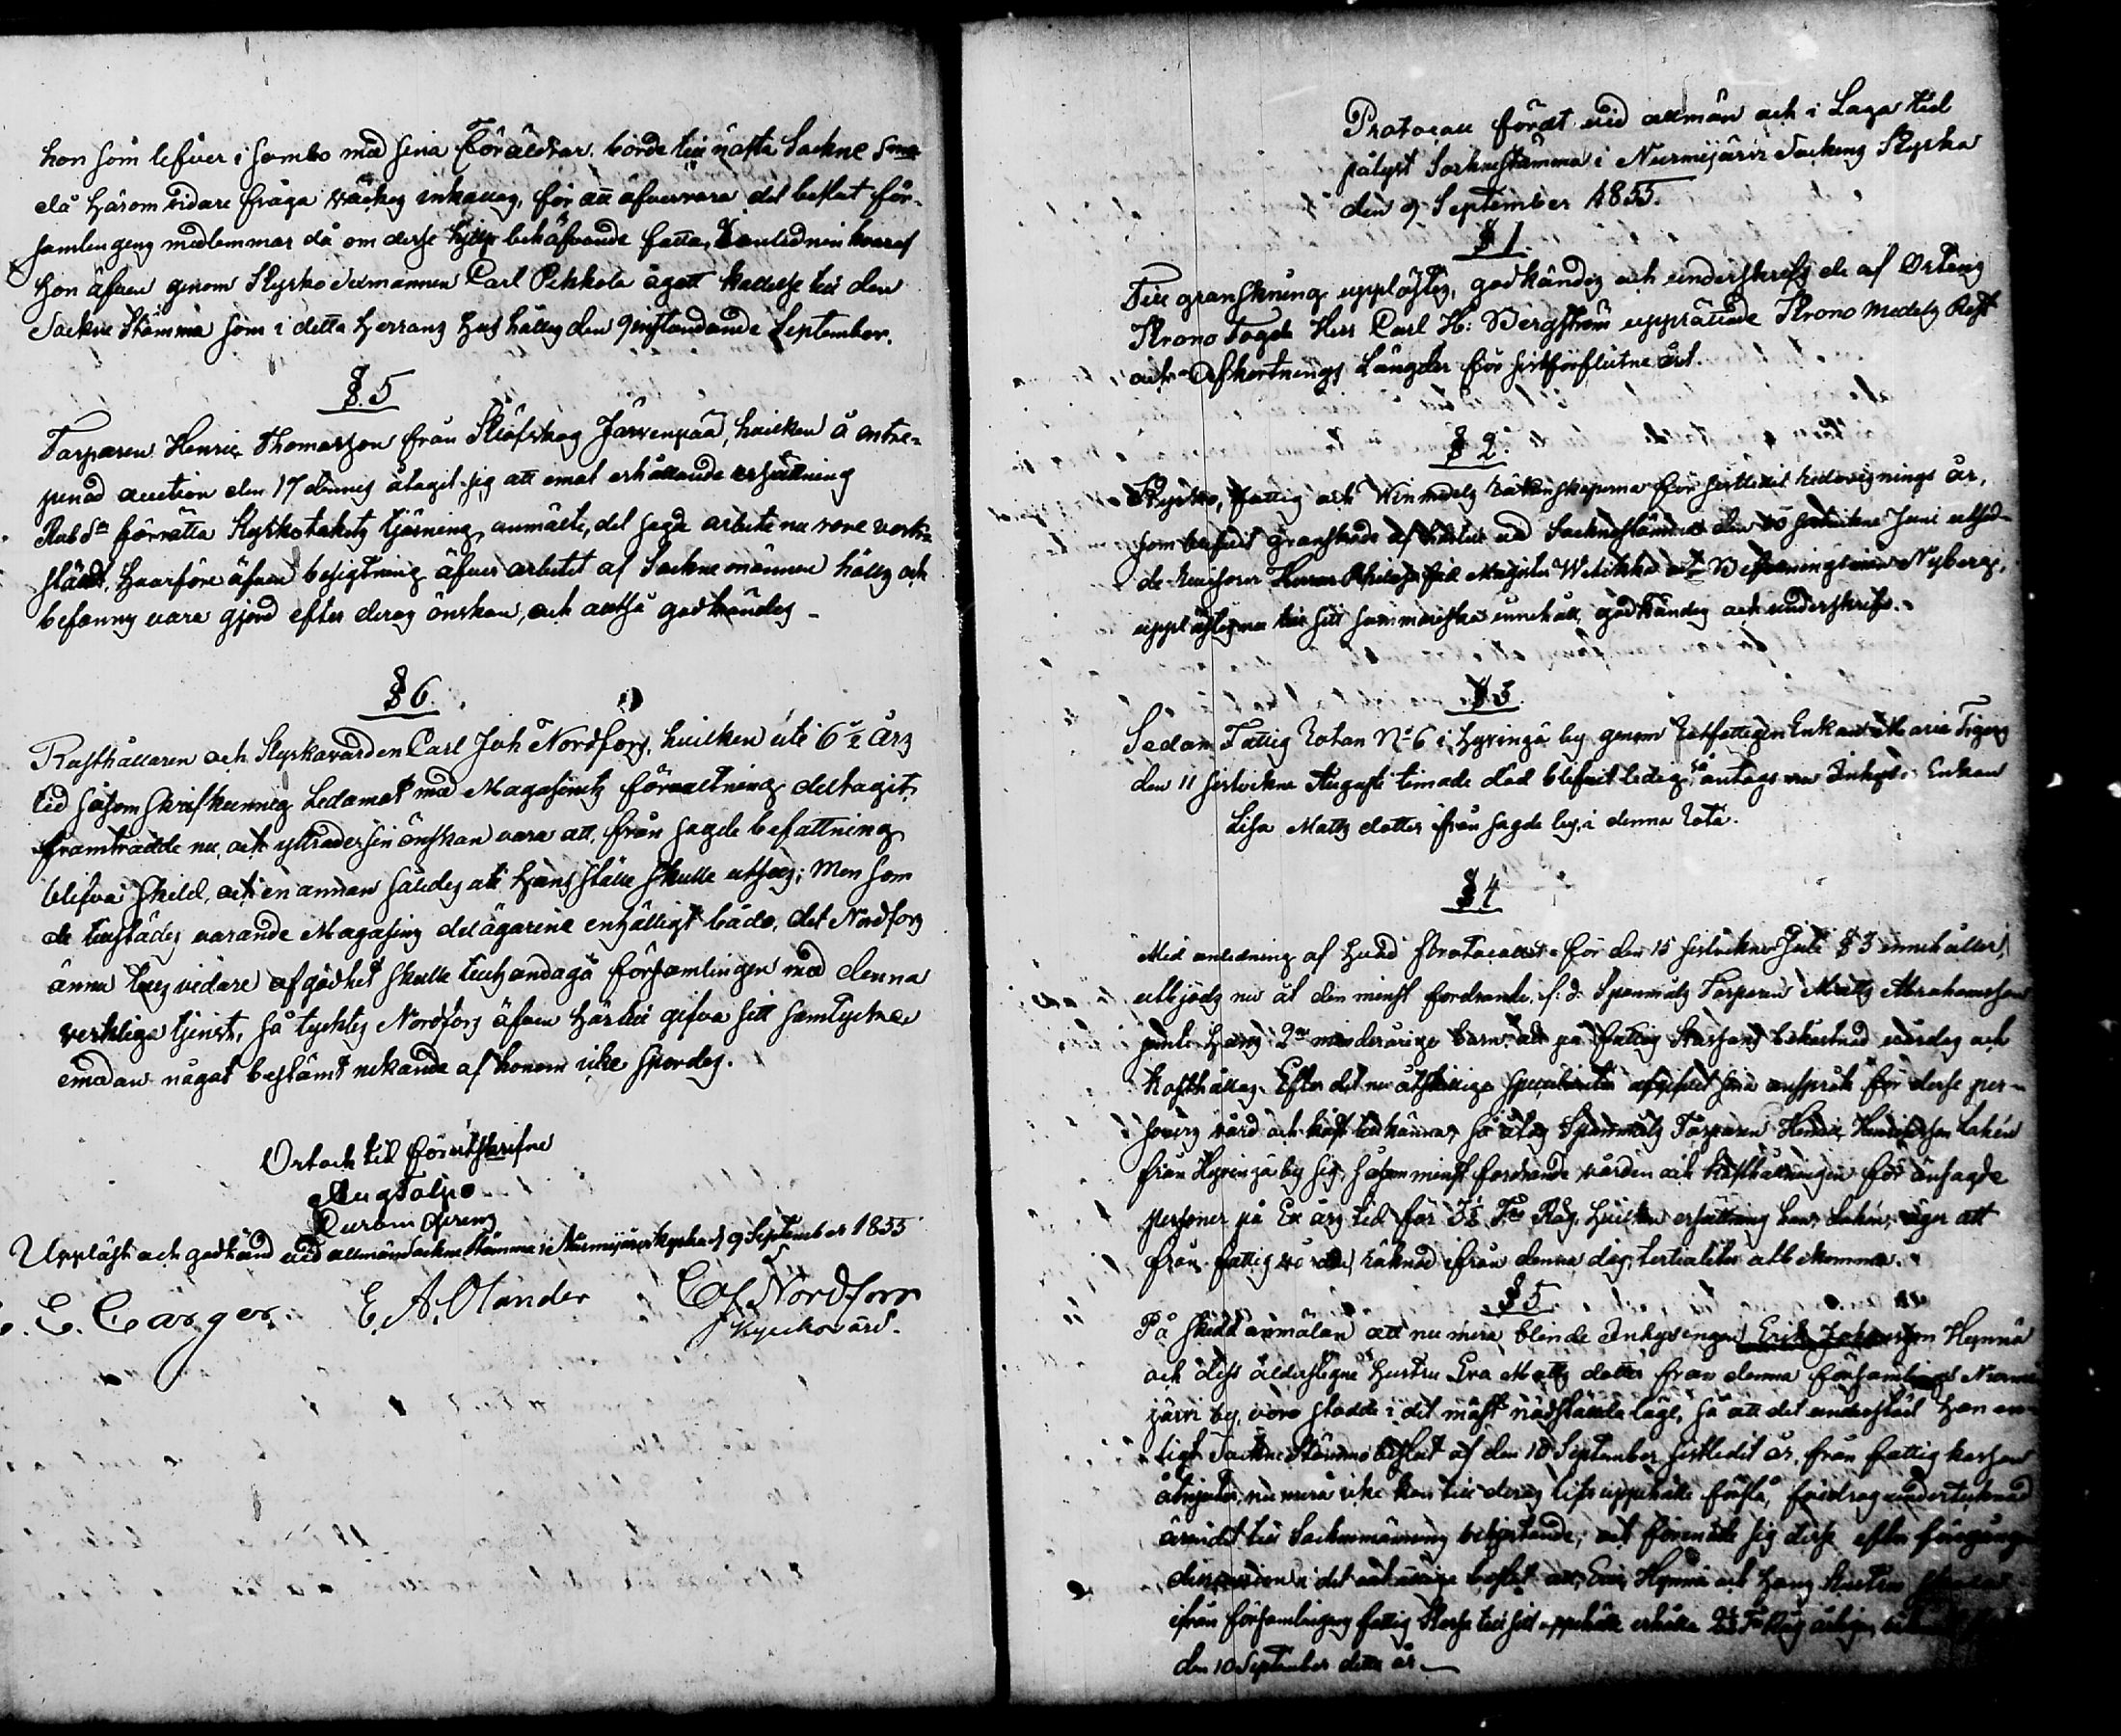 hon som lefver i sambo med sina Föräldrar, borde till nästa Sockne
då härom vidare fråga väckes inkallas, för att öfvervara det beslut för-
samlingens medlemmar då om desse hjelp behöfvande fatta, i anledning hvaraf
hon äfven genom Kyrko Sexmannen Carl Pekkola ägatt kallelse till den
Sockne Stämma som i detta hänseende hålles den 9 instundande September.
§. 5
Torparen Henric Thomasson från Skäfskog Järvenpää, hvilken å entre-
prenad auction den 17 dennes åtagit sig att emot erhållande ersättning
Rub Sr förrätta Kyrkotakets tjärning, anmälte, det sagde arbete nu vore verk-
stäldt, hvarföre äfven besigtning öfver arbetet af Socknemännen hölls och
befanns vara gjord efter deras önskan, och alltså godkändes –
§ 6.
Rusthållaren och Kyrkovärden Carl Joh Nordfors, hvilken uti 6½ års
tid såsom skrifkunnig Ledamot med Magasinets förvaltning deltagit,
framträdde nu, och yttrade sin önskan vara att, från sagde befattning
blifva skild, och en annan således uti hans ställe skulle utses; Men som
de tillstädes varande Magasins delägarene enhälligt både, det Nordfors
ännu tills vidare af godhet skulle tillhandagå församlingen med denna
verkliga tjenst, så tycktes Nordfors äfven härtill gifva sitt samtycke
emedan något bestämt nekande af honom icke spordes.
Ort och tid förutskrifne
Aug Tolpo
Curam gerens
Uppläst och godkänd vid allmän Sockne Stämma i Nurmijärvi kyrka d 9 September 1855
E. Carger. E. A. Olander C J Nordfors
Kyrkovärd.
Protocoll fördt vid allmän och i Laga tid
pålyst Sockne stämma i Nurmijärvi Sockens Kyrka
den 9 September 1855.
§ 1.
Till granskning upplästes, godkändes och underskrefs de af Ortens
Krono Fogde Herr Carl H: Bergström upprättade Krono Medels Rest
och Afkortnings Längder för sistförflutne året.
§ 2.
Kyrko, Fattig och Vinmedels räkenskaperna för sistledit redovisnings år,
som blifvit granskade af härtill vid Sockne stämma den 10 sistvikne Juni utsed-
de Revisorer Herrar Philosophiæ Magister Welikka och Befallningsman Nyberg,
upplästes nu till sitt summariska innehåll, godkändes och underskrefs.
§ 3.
Sedan Fattig Rotan No 6 i Hyvinge by genom Rotfattigen Enkan Maria Tigers
den 11 sistvikne Augusti timade död blifvit ledig, så antags nu Inhyses Enkan
Lisa Matts dotter ifrån sagde by, i denna Rota.
§ 4
Med anledning af hvad Protocollet för den 15 sistvikne Juli § 3 innehåller,
utbjöds nu åt den minst fordrande, f. d. Spannmåls Torparen Matts Abrahamsson
jemte hans 2ne minderåriga barn att på Fattig Kassans bekostnad vårdas och
kosthållas. Efter det nu åtskillige speculanter afgifvit sina anspråk för desse per-
soners vård och kost tillkänna, så åtog Spannmåls Torparen Henric Henricsson Lahén
från Hyvinge by sig, såsom minst fordrande vården och kosthållningen för ensagde
personer på Ett års tid för Tnr Råg, hvilken ersättning han, Lahén, äger att
från fattig räknad ifrån denna dag, tertialiter utbekomma.
§ 5.
På skedd anmälan att nu mera blinde Inhysingen Erik Johansson Hynnä
och dess ålderstigne hustru Eva Matts dotter från denna församlings Nurmi-
järvi by, voro stadde i det mäst nödställda läge, så att det understöd han en-
ligt Sockne Stämmobeslut af den 10 September sistledit år, från fattig kassan
åtnjuter, nu mera icke kan till deras lifs uppehälle förslå, föredrog undertecknad
ärendet till Sockenmännens bepröfvande; och förenade sig desse efter föregången
discussion i det enhällige beslut att, Eric Hynnä och hans Hustru
ifrån församlingens fattig Kassa till sitt uppehälle erhålla 2½ Tnr Råg årligen,
den 10 September detta år. —